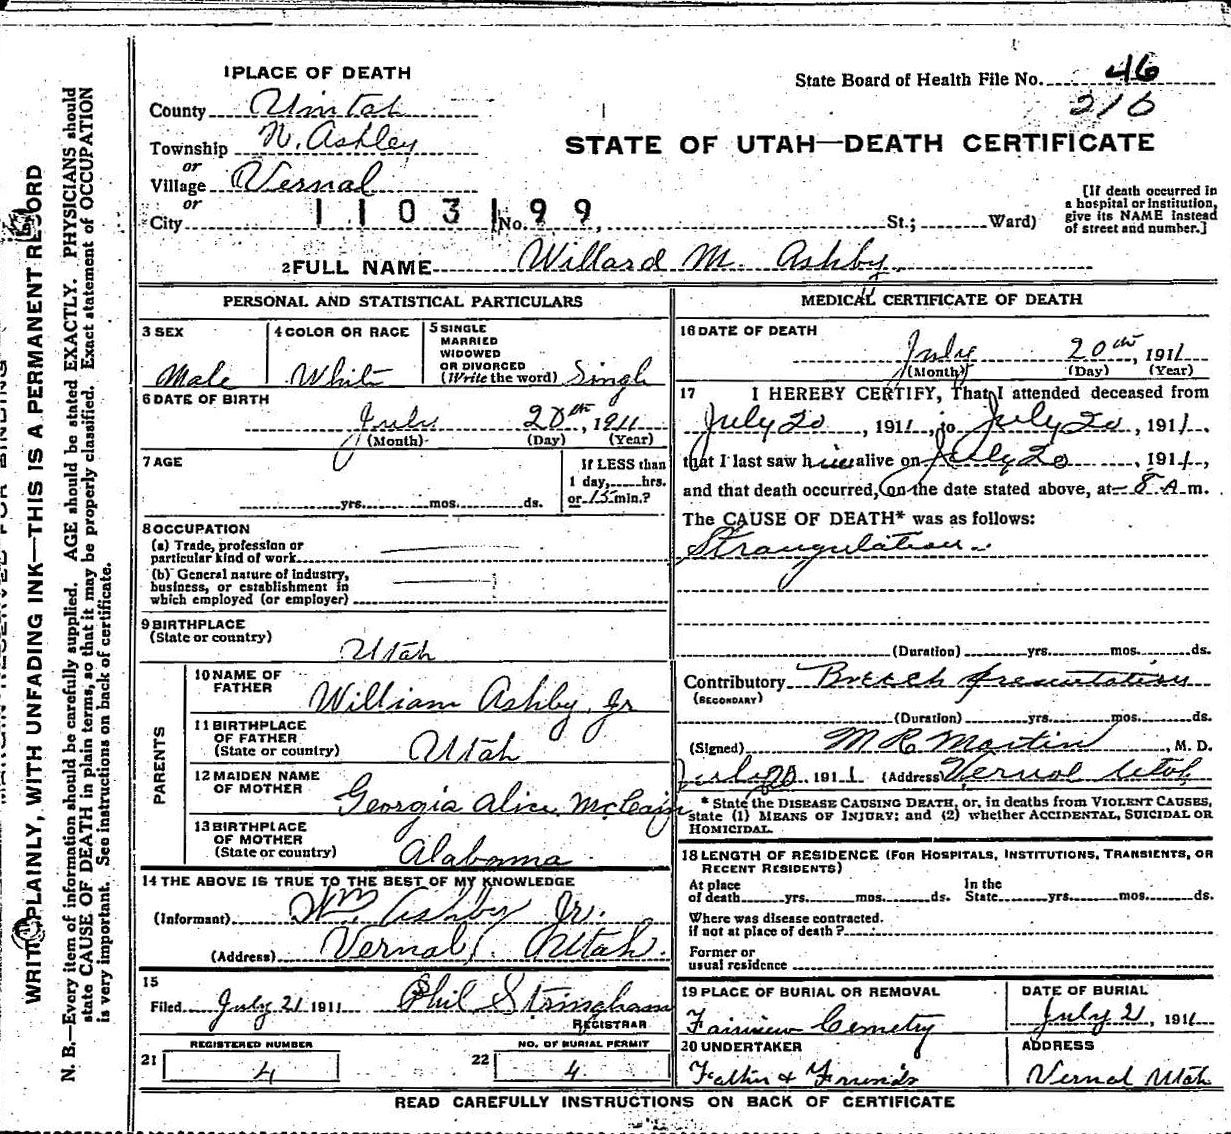 1 PLACE OF DEATH
State Board of Health File No. 46
216
County Uintah
Township N. Ashley
or
Village Vernal
or
City
1 1 0 3 1 No. 99 St.; Ward)
STATE OF UTAH—DEATH CERTIFICATE
[If death occurred in
a hospital or institution,
give its NAME instead
of street and number.]
2 FULL NAME Willard M. Ashby
PERSONAL AND STATISTICAL PARTICULARS
3 SEX
Male
4 COLOR OR RACE
White
5 SINGLE
MARRIED
WIDOWED
OR DIVORCED
(Write the word) Single
6 DATE OF BIRTH
July 20th, 1911
(Month) (Day) (Year)
7 AGE
yrs. mos. ds.
If LESS than
1 day, hrs.
or 15 min.?
8 OCCUPATION
(a) Trade, profession or
particular kind of work
(b) General nature of industry,
business, or establishment in
which employed (or employer)
9 BIRTHPLACE
(State or country)
Utah
PARENTS
10 NAME OF
FATHER
William Ashby, Jr
11 BIRTHPLACE
OF FATHER
(State or country)
Utah
12 MAIDEN NAME
OF MOTHER
Georgia Alice McCain
13 BIRTHPLACE
OF MOTHER
(State or country)
Alabama
14 THE ABOVE IS TRUE TO THE BEST OF MY KNOWLEDGE
(Informant) Wm. Ashby Jr.
(Address) Vernal, Utah.
15
Filed July 21 1911 Phil Stringham
REGISTRAR
REGISTERED NUMBER
21 4
NO. OF BURIAL PERMIT
22 4
MEDICAL CERTIFICATE OF DEATH
16 DATE OF DEATH
July 20th, 1911
(Month) (Day) (Year)
17 I HEREBY CERTIFY, That I attended deceased from
July 20, 1911, to July 20, 1911.
that I last saw him alive on July 20, 1911,
and that death occurred, on the date stated above, at 8 A. m.
The CAUSE OF DEATH* was as follows:
Strangulation
(Duration) yrs. mos. ds.
Contributory Breech presentation
(SECONDARY)
(Duration) yrs. mos. ds.
(Signed) M R Martin, M. D.
July 20 1911 (Address) Vernal Utah
* State the DISEASE CAUSING DEATH, or, in deaths from VIOLENT CAUSES,
state (1) MEANS OF INJURY; and (2) whether ACCIDENTAL, SUICIDAL OR
HOMICIDAL.
18 LENGTH OF RESIDENCE (FOR HOSPITALS, INSTITUTIONS, TRANSIENTS, OR
RECENT RESIDENTS)
At place
of death yrs. mos. ds.
In the
State yrs. mos. ds.
Where was disease contracted.
if not at place of death?
Former or
usual residence
19 PLACE OF BURIAL OR REMOVAL
Fairview Cemetry
DATE OF BURIAL
July 21, 1911
20 UNDERTAKER
Father & Friends
ADDRESS
Vernal Utah
READ CAREFULLY INSTRUCTIONS ON BACK OF CERTIFICATE
WRITE PLAINLY, WITH UNFADING INK—THIS IS A PERMANENT RECORD
N. B.—Every item of information should be carefully supplied. AGE should be stated EXACTLY. PHYSICIANS should
state CAUSE OF DEATH in plain terms, so that it may be properly classified. Exact statement of OCCUPATION
is very important. See instructions on back of certificate.